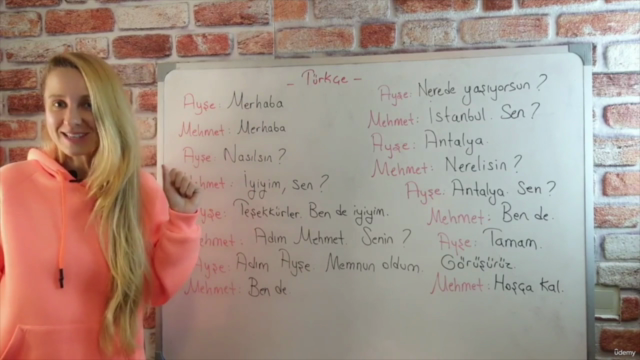 - Türkçe -
Ayşe: Merhaba
Mehmet: Merhaba
Ayşe: Nasılsın?
Mehmet: İyiyim, sen?
Ayşe: Teşekkürler. Ben de iyiyim.
Mehmet: Adım Mehmet. Senin?
Ayşe: Adım Ayşe Memnun oldum.
Mehmet: Ben de
Ayşe: Nerede yaşıyorsun?
Mehmet: İstanbul. Sen?
Ayşe: Antalya.
Mehmet: Nerelisin?
Ayşe: Antalya. Sen?
Mehmet: Ben de.
Ayşe: Tamam.
Görüşürüz
Mehmet: Hoşça Kal.
ûdemy